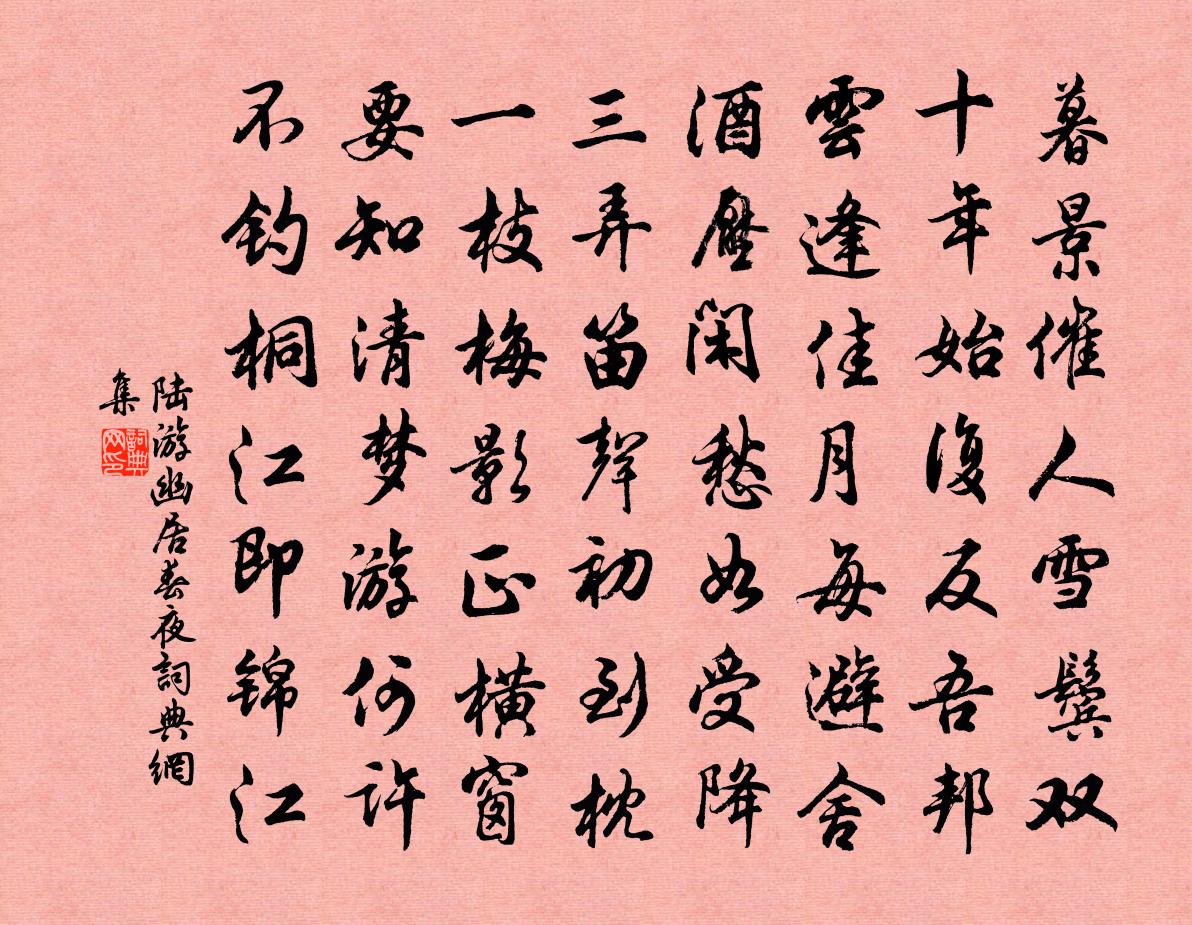 暮景催人雪鬓双
十年始復反吾邦
雲逢佳月每避舍
酒壓閑愁如受降
三弄笛聲初到枕
一枝梅影正横窗
要知清梦游何许
不钓桐江即锦江
陆游幽居春夜詞典網
集
詞典
网印